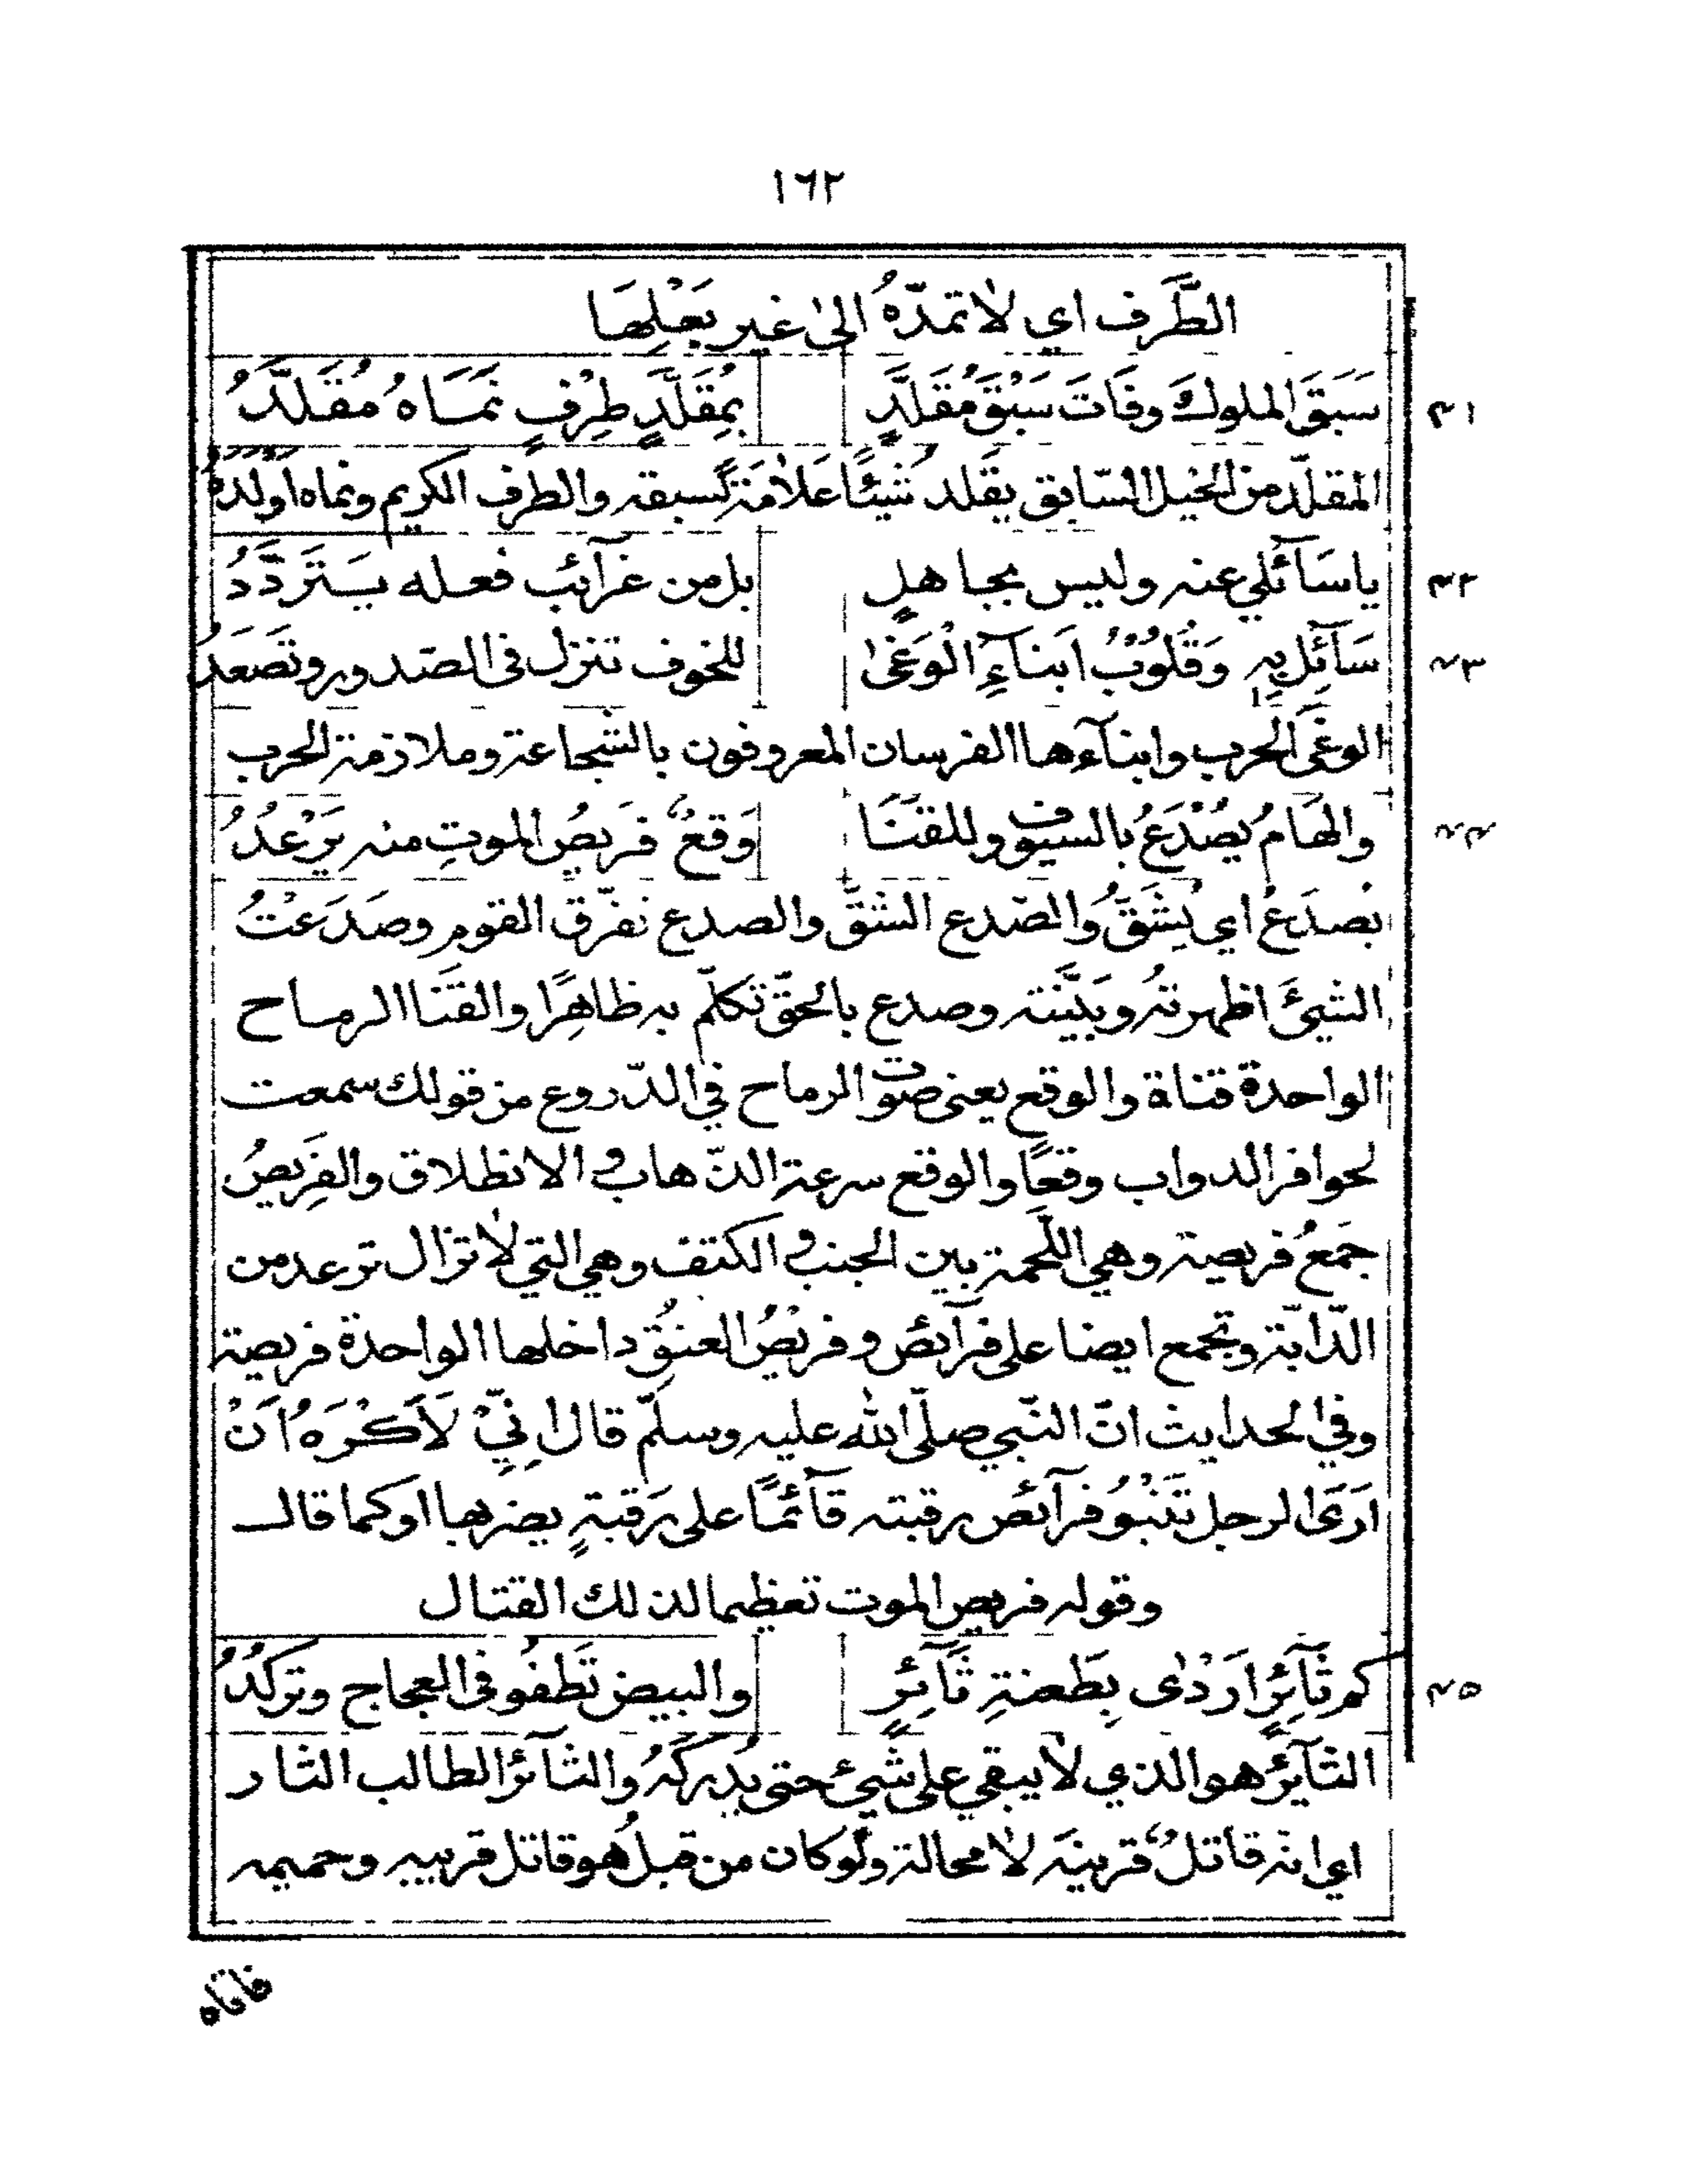 ١٦٢
الطَّرف اي لا تمدّهُ الى غير بَعْلِهَا
٤١ سَبَقَ الملوكَ وفَاتَ سَبْقَ مُقَلَّدٍ بمُقَلَّدٍ طِرْفٍ نَمَاهُ مُقَلَّدُ
المقلّد من الخيل السّابق يقَلد شيئًا عَلامَة لسبقه والطِرف الكريم ونماه اولدهُ
٤٢ يا سَآئلي عنه وليس بجاهلٍ بل من غرآئب فعله يَسْتَرَدَّدُ
٤٣ سَآئِل بِهِ وَقُلُوبُ ابنآءِ الْوَغىٰ للخوف تنزل فى الصّدور وتَصَعَدُ
الوغى الحرب وابنآءها الفرسان المعروفون بالشجاعة وملازمة الحرب
٤٤ والهَامُ يُصْدَعُ بالسيوف وللقَنَا وَقعٌ فَريصُ الموتِ منه يَرْعَدُ
يُصدَعُ اي يُشَقُّ والصّدع الشقّ والصدع تفرّق القوم وصَدَعْتُ
الشيئَ اظهرتهُ وبَيَّنته وصدع بالحقّ تكلّم به ظاهِرًا والقَنَا الرماح
الواحدة قناة والوقع يعنى صوت الرماح في الدّروع من قولك سمعت
لحوافر الدواب وقعًا والوقع سرعة الذّهاب و الانطلاق والفَرِيصُ
جَمعُ فريصة وهي اللّحمة بين الجنب و الكتف وهي التي لا تزال ترعد من
الدّابّة وتجمع ايضا على فرآئص و فريصُ العنُق داخلها الواحدة فريصة
وفي الحدايث انّ النّبي صلّى الله عليه وسلّم قال اِنِّيْ لَاَكْرَهُ اَنْ
اَرَى الرجل تَنْبُو فرآئص رقبته قآئمًا على رَقبةٍ يضربها اوكما قال
وقوله فريص الموت تعظيما لذلك القتال
٤٥ كم ثآئِرٍ اَرْدٰى بِطَعنةِ ثَآئِرٍ والبيض تَطفُو فى العجاج وتركُدُ
الثآئِرُ هو الذي لا يبقي على شيئ حتى يُدركَهُ والثآئر الطالب الثار
اي انه قاتلٌ قرينَه لا محالة ولوكان من قبلُ هو قاتل قريبه وحميمه